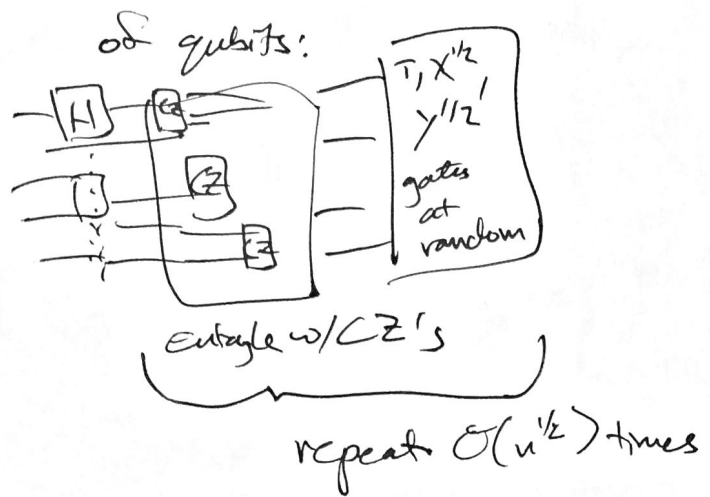 of qubits:
H
CZ
CZ
CZ
T, X^1/2,
Y^1/2
gates
at
random
Entagle w/CZ's
repeat O(n^1/2) times